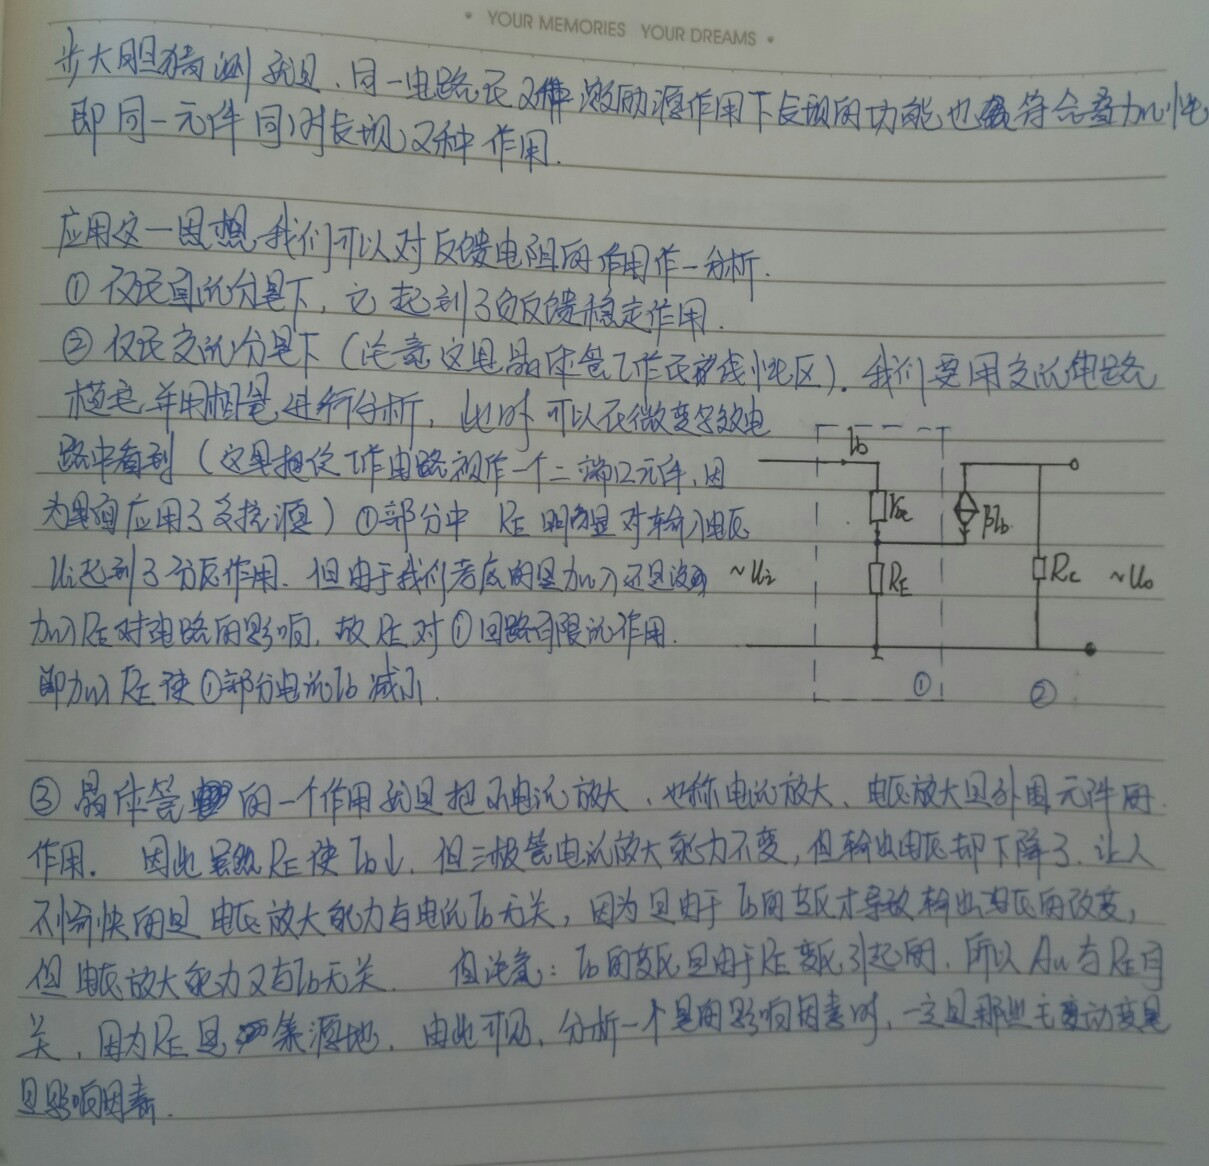 • YOUR MEMORIES YOUR DREAMS •
步大胆猜测就是、同一电路在2种激励源作用下表现的功能也符合叠加性
即同一元件同时表现2种作用.
应用这一思想,我们可以对反馈电阻的作用作一分析.
① 仅在直流分量下, 它起到了负反馈稳定作用.
② 仅在交流分量下 (注意这里晶体管工作在线性区). 我们要用交流电路
模型并用相量进行分析, 此时可以在微变等效电
路中看到 (这里把仅工作电路视作一个二端口元件, 因
为里面应用了受控源) ①部分中 RE 明显对输入电压
Ui起到了分压作用. 但由于我们考虑的是加入还是没
加入RE对电路的影响, 故RE对①回路有限流作用.
即加入RE使①部分电流Ib减小.
Ib
rbe
βIb
RE
RC
~Ui
~Uo
①
②
③ 晶体管的一个作用就是把小电流放大、也称电流放大、电压放大是外围元件的
作用. 因此虽然RE使Ib↓, 但三极管电流放大能力不变, 但输出电压却下降了. 让人
不愉快的是 电压放大能力与电流Ib无关, 因为是由于Ib的变化才导致输出电压的改变,
但电压放大能力又与Ib无关. 但注意: Ib的变化是由于RE变化引起的. 所以Au与RE有
关, 因为RE是源地. 由此可见, 分析一个量的影响因素时, 一定是那些主动变量
是影响因素.